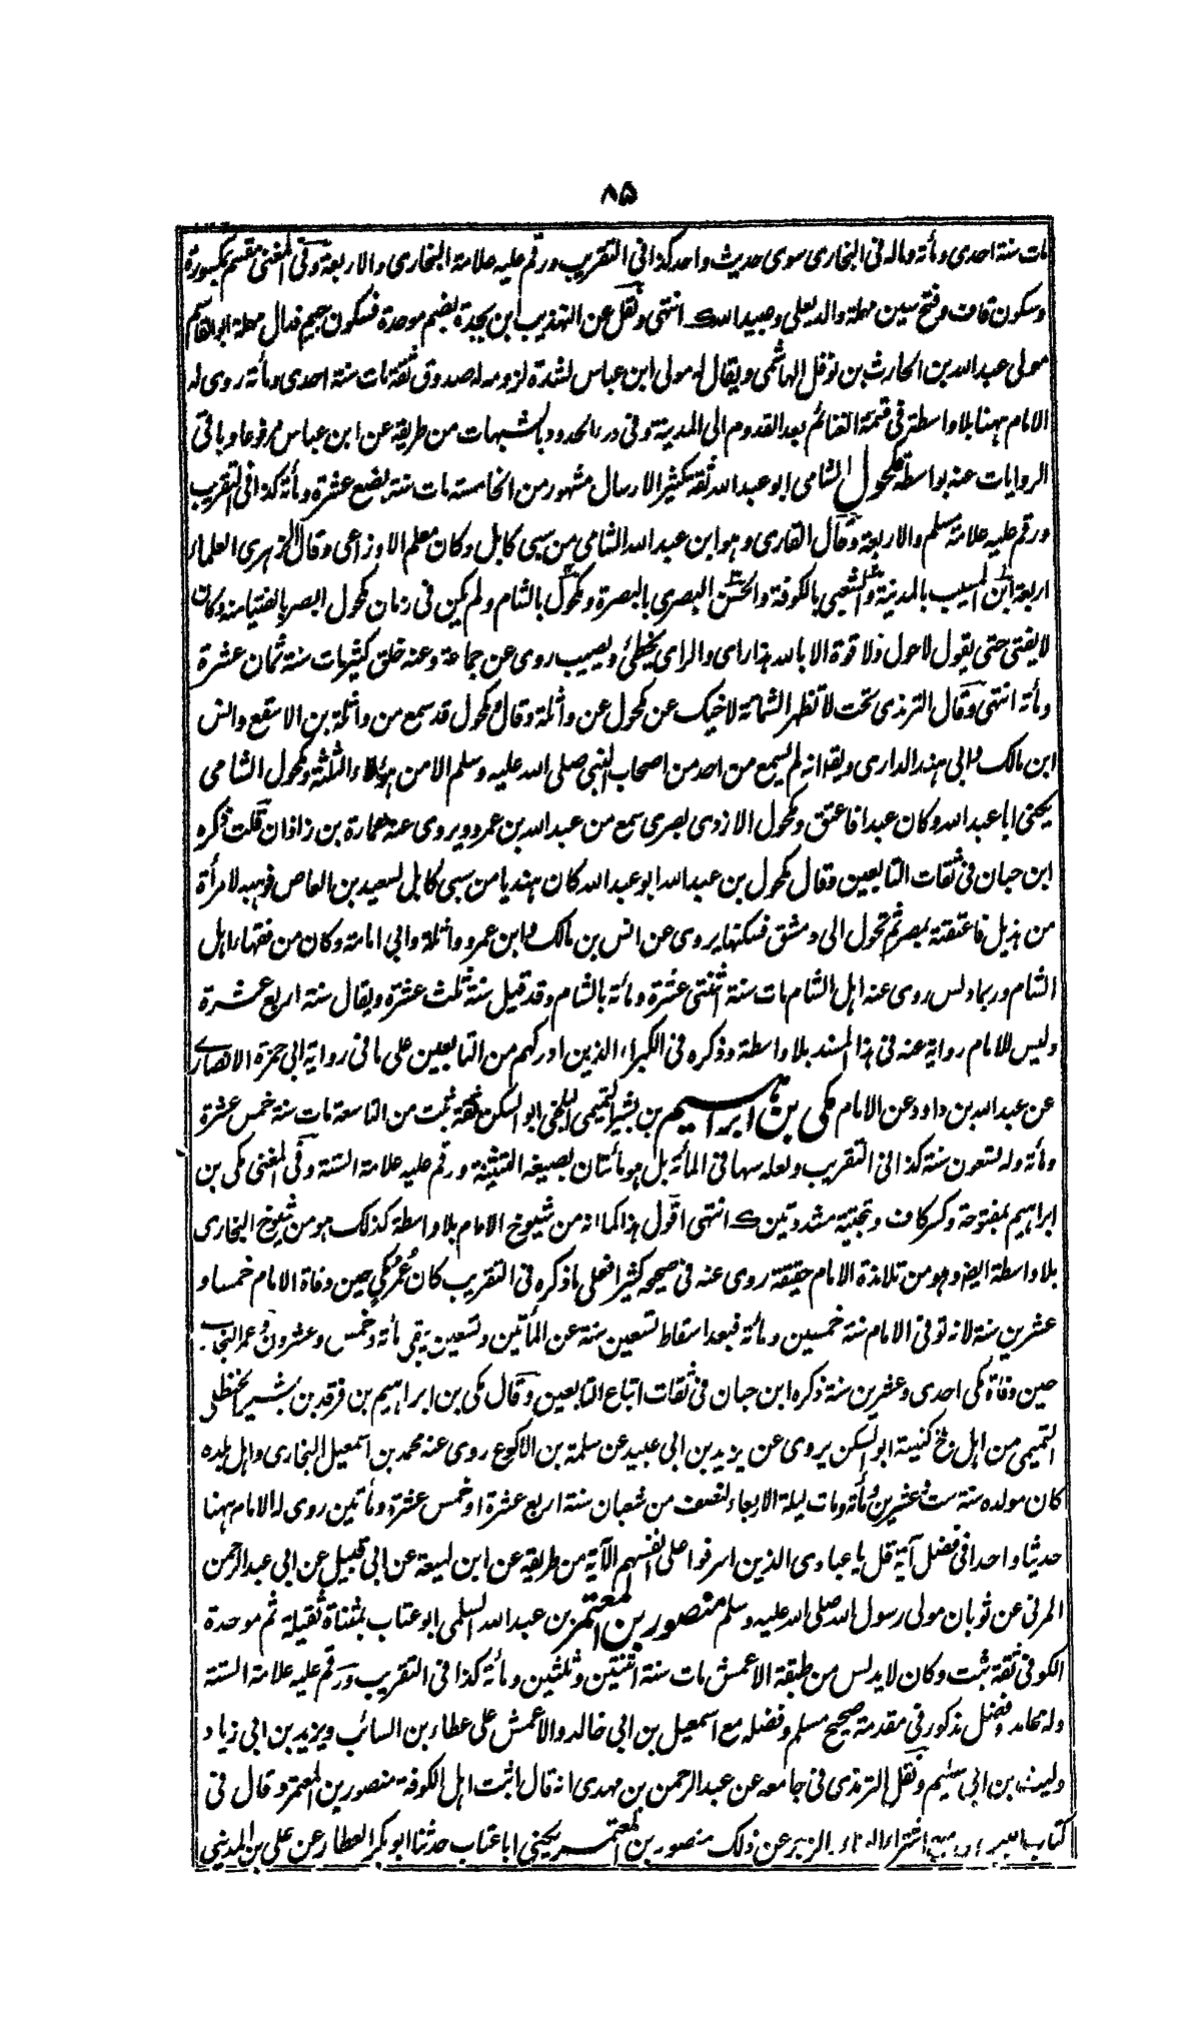 ٨۵
مات سنة احدى ومأته وماله فى البخارى سوى حديث واحد كذا فى التقريب ورقم عليه علامة البخارى والاربعة وفى المغنى مقسم بكسورة
وسكون قاف وفتح سين مهملة والد يعلى وعبيد الله انتهى ونقل عن التهذيب ابن بجدة بضم موحدة فسكون جيم فدال مهملة ابو القاسم
مولى عبد الله بن الحارث بن نوفل الهاشمى ويقال له مولى ابن عباس لشدة لزومه له صدوق ثقة مات سنة احدى ومأته روى له
الامام ههنا بلا واسطة فى قسمة الغنائم بعد القدوم الى المدينة وفى درء الحدود بالشبهات من طريقة عن ابن عباس مرفوعا وباقى
الروايات عنه بواسطة مكحول الشامى ابو عبد الله ثقة كثير الارسال مشهور من الخامسة مات سنة بضع عشرة ومأته كذا فى التقريب
ورقم عليه علامة مسلم والاربعة وقال القارى وهو ابن عبد الله الشامى من سبى كابل وكان معلم الاوزاعى وقال الزهرى العلماء
اربعة ابن المسيب بالمدينة والشعبى بالكوفة والحسن البصرى بالبصرة ومكحول بالشام ولم يكن فى زمان مكحول ابصر بالفتيا منه وكان
لا يفتى حتى يقول لا حول ولا قوة الا بالله هذا راى والراى يخطئ ويصيب روى عن جماعة وعنه خلق كثير مات سنة ثمان عشرة
ومأته انتهى وقال الترمذى تحت لا تظهر الشماتة لاخيك عن مكحول عن واثلة وقال مكحول قد سمع من واثلة بن الاسقع وانس
ابن مالك وابى هند الدارى ويقال انه لم يسمع من احد من اصحاب النبى صلى الله عليه وسلم الا من هؤلاء الثلثة ومكحول الشامى
يكنى ابا عبد الله وكان عبدا فاعتق ومكحول الازدى بصرى سمع من عبد الله بن عمر ويروى عنه عمارة بن زاذان قلت ذكره
ابن حبان فى ثقات التابعين وقال مكحول بن عبد الله ابو عبد الله كان هنديا من سبى كابل لسعيد بن العاص فوهبه لامرأة
من هذيل فاعتقته بمصر ثم تحول الى دمشق فسكنها يروى عن انس بن مالك وابن عمر وواثلة وابى امامة وكان من فقهاء اهل
الشام وربما دلس روى عنه اهل الشام مات سنة اثنتى عشرة ومأته بالشام وقد قيل سنة ثلث عشرة ويقال سنة اربع عشرة
وليس للامام رواية عنه فى هذا المسند بلا واسطة وذكره فى الكبراء الذين ادركهم من التابعين على ما فى رواية ابى حمزة الانصارے
عن عبد الله بن داود عن الامام مكى بن ابراهيم بن بشير التميمى البلخى ابو السكن ثقة ثبت من التاسعة مات سنة خمس عشرة
ومأته وله تسعون سنة كذا فى التقريب ولعله سها فى المأته بل هو مأتان بصيغة التثنية ورقم عليه علامة الستة وفى المغنى مكى بن
ابراهيم بمفتوحة وكسر كاف وتحتية مشددتين انتهى اقول هذا كما انه من شيوخ الامام بلا واسطة كذلك هو من شيوخ البخارى
بلا واسطة ايضا وهو من تلامذة الامام حقيقة روى عنه فى صحيحه كثيرا فعلى ما ذكره فى التقريب كان عمر مكى حين وفاة الامام خمسا و
عشرين سنة لانه توفى الامام سنة خمسين ومأته فبعد اسقاط تسعين سنة عن المأتين وتسعين بقى مأته وخمس وعشرون وعمر البخارى
حين وفاة مكى احدى وعشرين سنة ذكره ابن حبان فى ثقات اتباع التابعين وقال مكى بن ابراهيم بن فرقد بن بشير الحنظلى
التميمى من اهل بلخ كنيته ابو السكن يروى عن يزيد بن ابى عبيد عن سلمة بن الاكوع روى عنه محمد بن اسمعيل البخارى واهل بلده
كان مولده سنة ست وعشرين ومأته ومات ليلة الاربعاء لنصف من شعبان سنة اربع عشرة او خمس عشرة ومأتين روى له الامام ههنا
حديثا واحدا فى فضل آية قل يا عبادى الذين اسرفوا على انفسهم الآية من طريقه عن ابن لهيعة عن ابى قبيل عن ابى عبد الرحمن
المزنى عن ثوبان مولى رسول الله صلى الله عليه وسلم منصور بن المعتمر بن عبد الله السلمى ابو عتاب بمثناة ثقيلة ثم موحدة
الكوفى ثقة ثبت وكان لا يدلس من طبقة الاعمش مات سنة اثنتين وثلثين ومأته كذا فى التقريب ورقم عليه علامة الستة
وله محامد وفضل مذكور فى مقدمة صحيح مسلم وفضله مع اسمعيل بن ابى خالد والاعمش على عطاء بن السائب ويزيد بن ابى زياد
وليث بن ابى سليم ونقل الترمذى فى جامعه عن عبد الرحمن بن مهدى انه قال اثبت اهل الكوفة منصور بن المعتمر وقال فى
كتاب عن ذلك منصور بن المعتمر يكنى ابا عتاب حدثنا ابو بكر العطار عن على بن المدينى